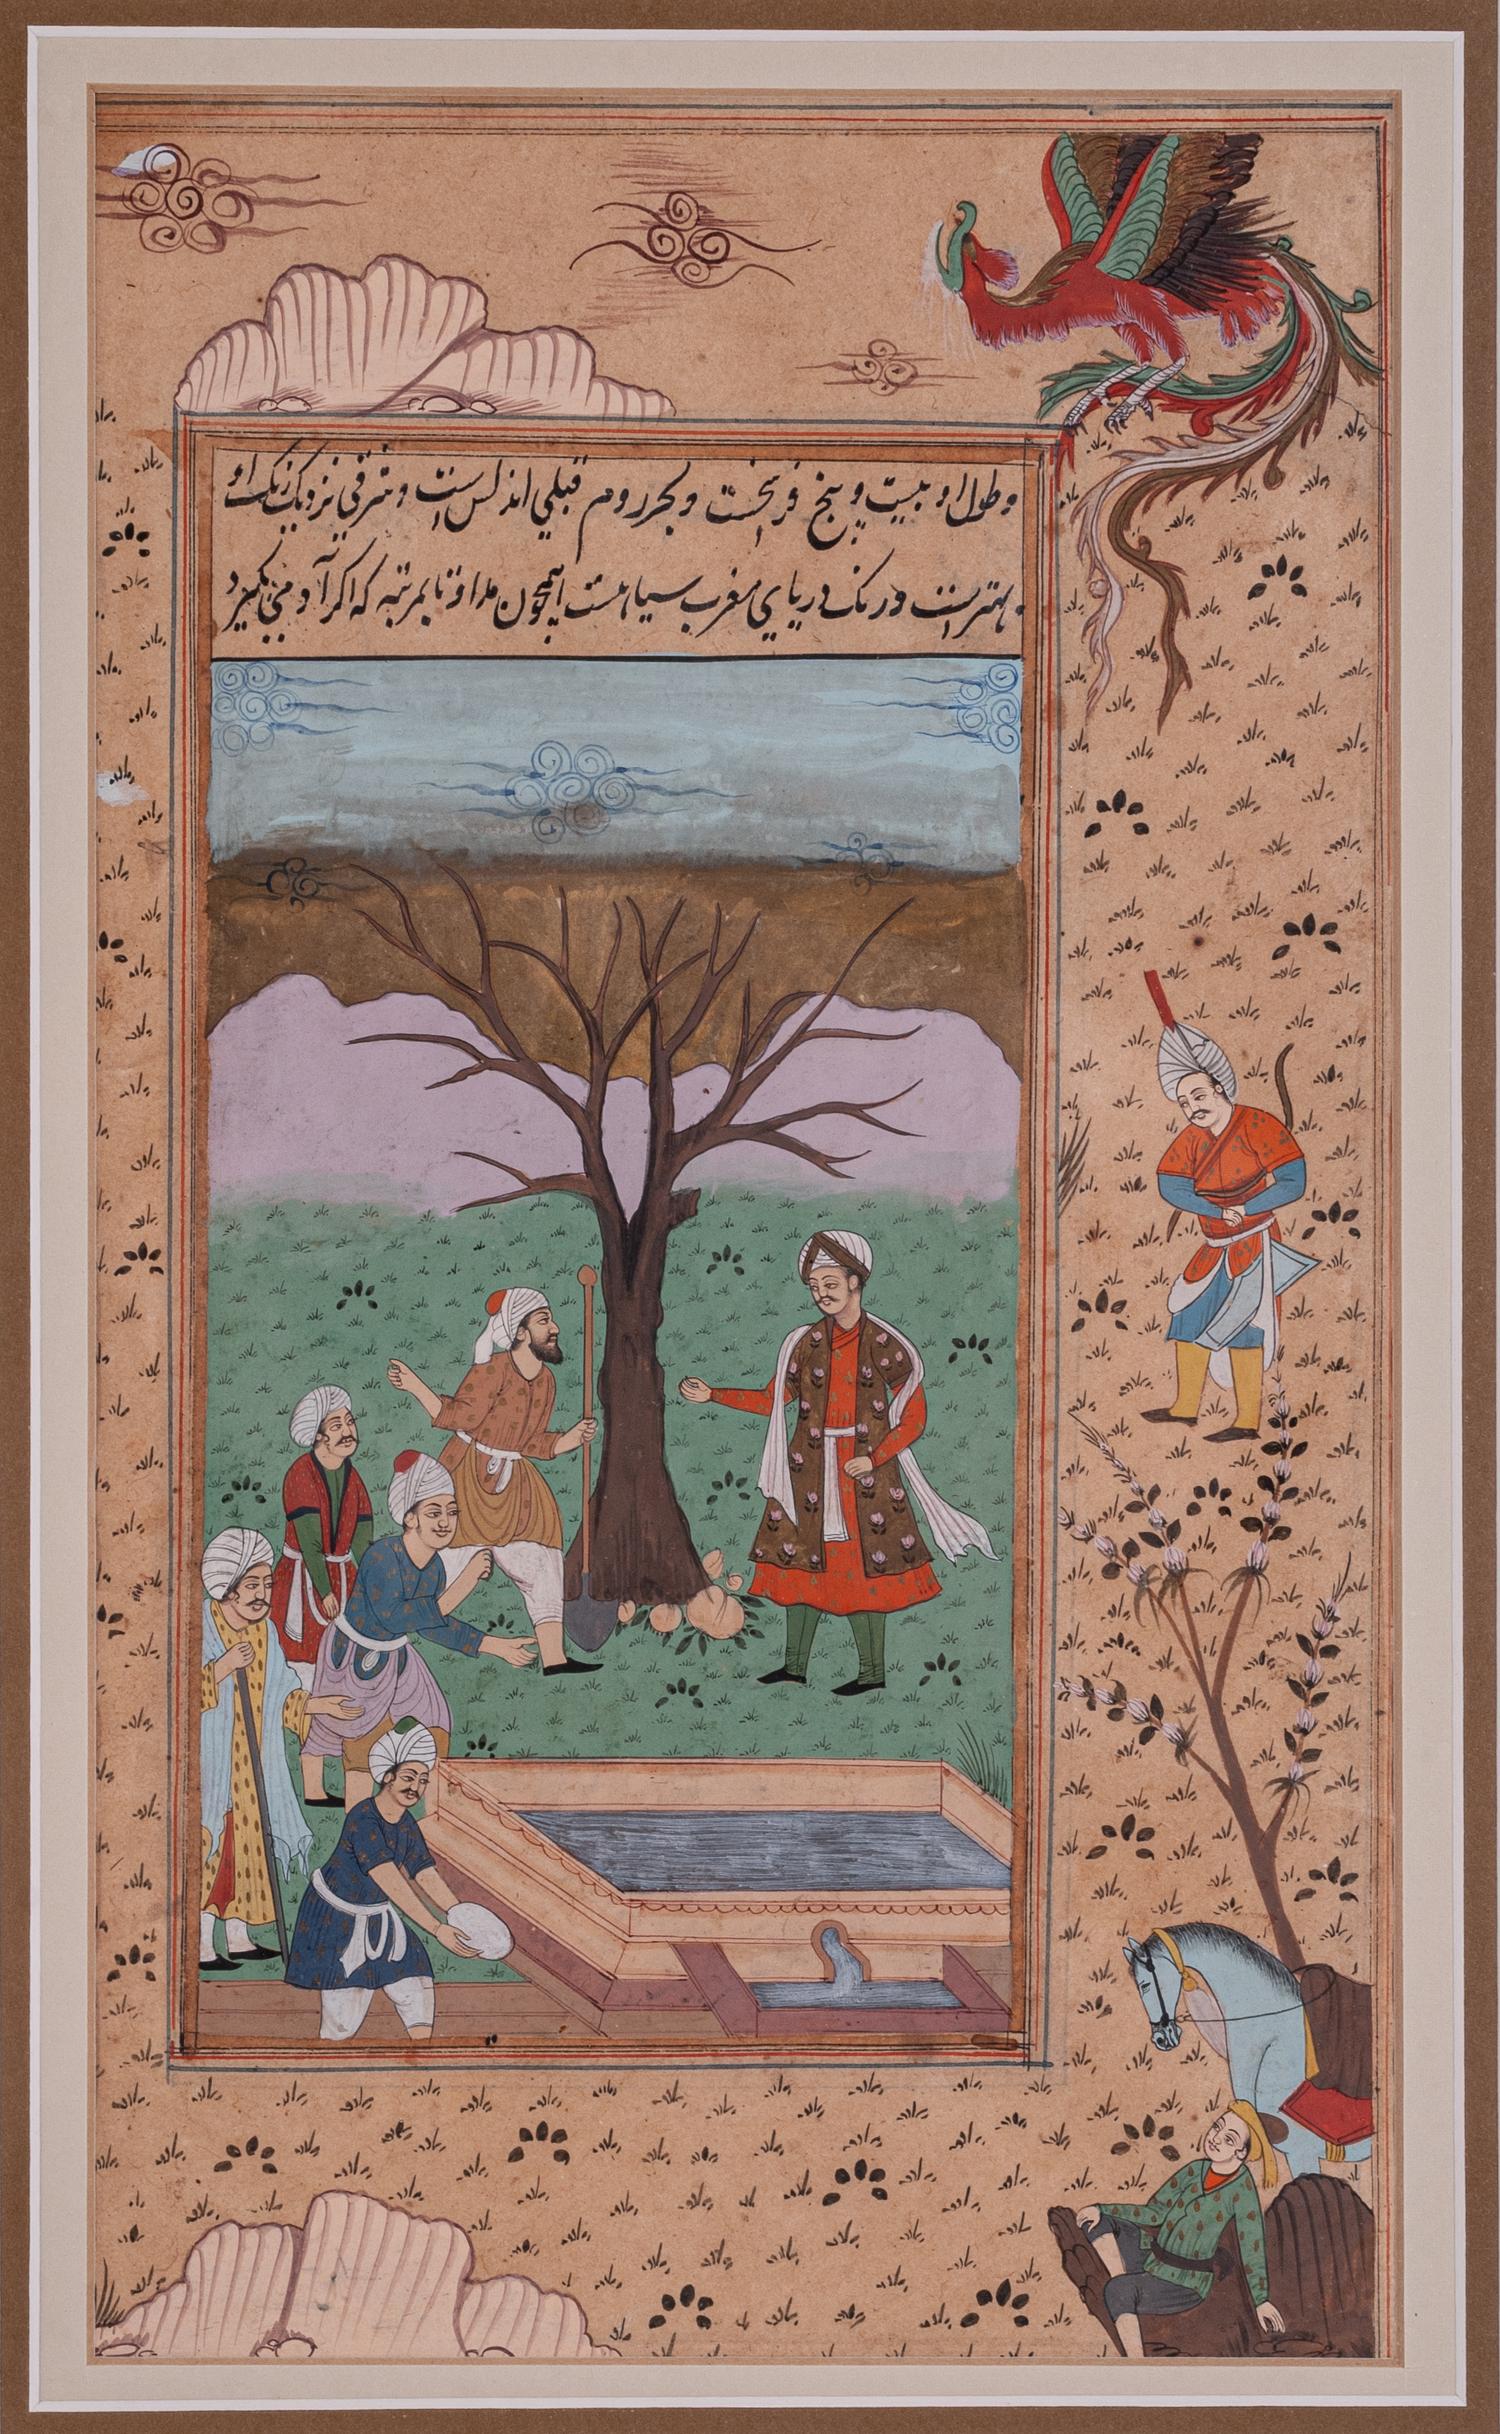 و طول او بیست و پنج فرسخست و بحر روم قبلي اندلس است و شرقي نزدیک
بهتر است و رنک دریای مغرب سیاهست همچون مداد تا بمرتبه که اکر آدمي